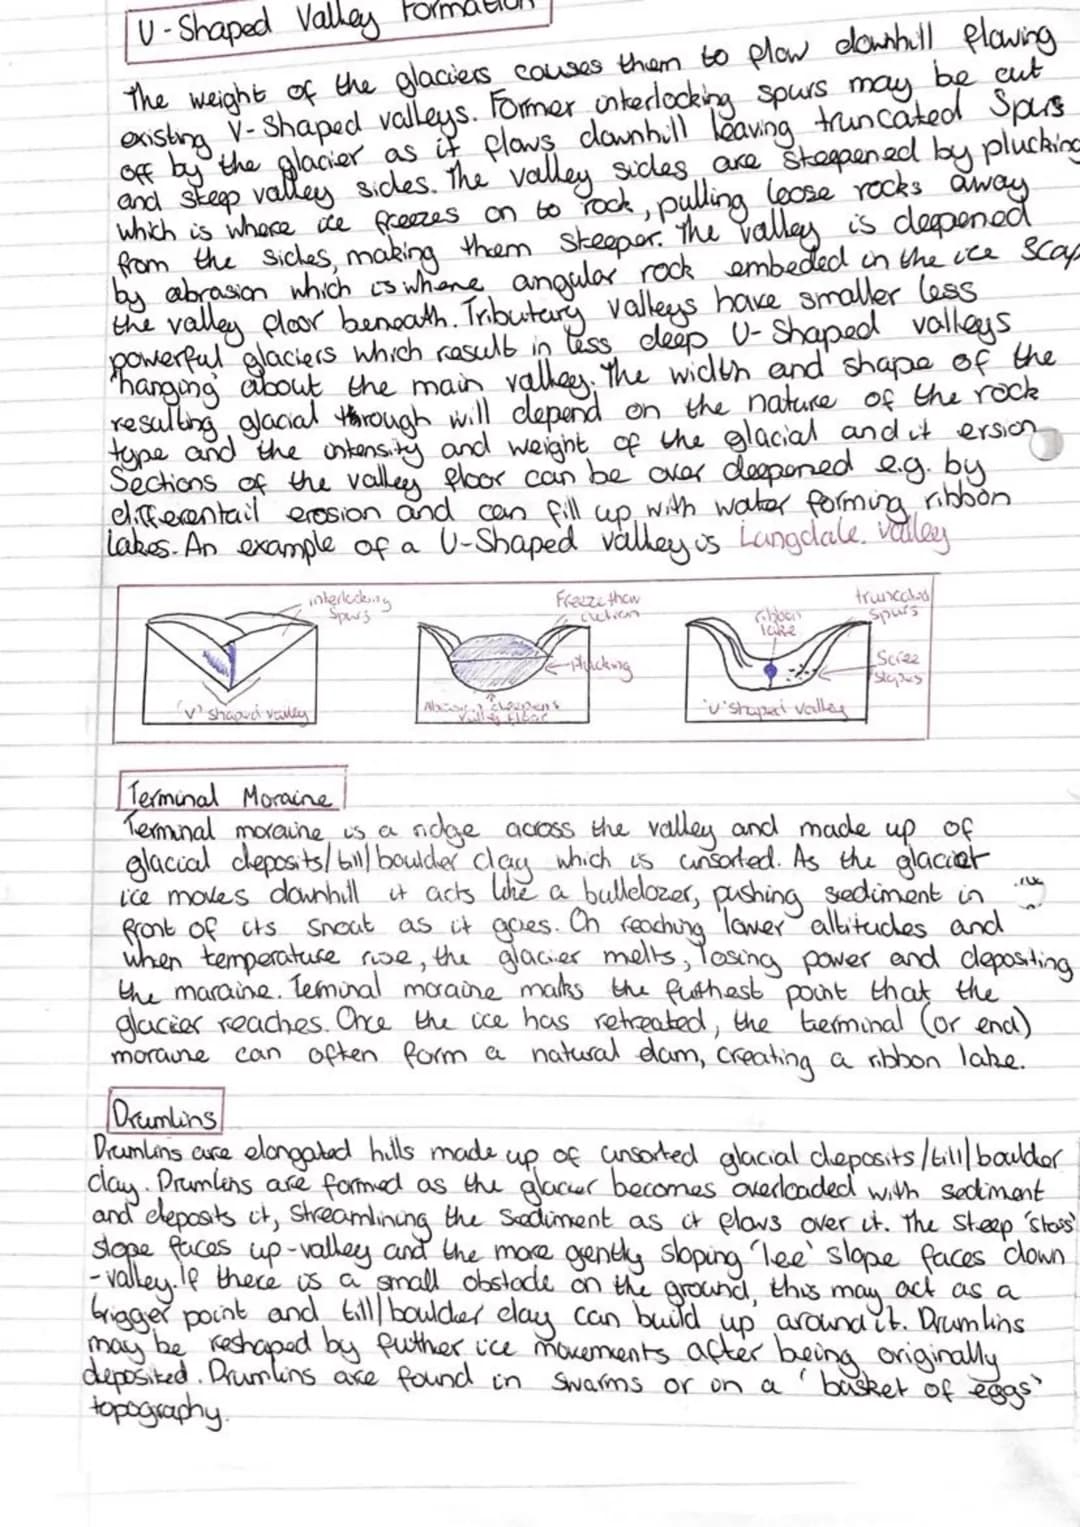 U-Shaped Valley Formation
The weight of the glaciers causes them to flow downhill flowing
existing V-Shaped valleys. Former interlocking spurs may be cut
off by the glacier as it flows downhill leaving truncated Spurs
and steep valley sides. The valley sides are steepened by plucking
which is where ice freezes on to rock, pulling loose rocks away
from the sides, making them steeper. The valley is deepened
by abrasion which is where angular rock embeded in the ice Scap
the valley floor beneath. Tributary valleys have smaller less
powerful glaciers which result in less deep U-Shaped valleys
'hanging' about the main valley. The width and shape of the
resulting glacial through will depend on the nature of the rock
type and the intensity and weight of the glacial and it ersion
Sections of the valley floor can be over deepened e.g. by
differentail erosion and can fill up with water forming ribbon
lakes. An example of a U-Shaped valley is Langdale valley
interlocking
Spurs
'V' shaped valley
Freeze thaw
action
plucking
Abrasion deepens
valley floor
ribbon
lake
truncated
spurs
Scree
slopes
'U' shaped valley
Terminal Moraine
Terminal moraine is a ridge across the valley and made up of
glacial deposits/till/boulder clay which is unsorted. As the glacier
ice moves downhill it acts like a bulldozer, pushing sediment in
front of its snout as it goes. On reaching lower altitudes and
when temperature rise, the glacier melts, losing power and depositing
the moraine. Teminal moraine maks the futhest point that the
glacier reaches. Once the ice has retreated, the terminal (or end)
moraine can often form a natural dam, creating a ribbon lake.
Drumlins
Drumlins are elongated hills made up of unsorted glacial deposits/till/boulder
clay. Drumlins are formed as the glacier becomes overloaded with sediment
and deposits it, streamlining the sediment as it flows over it. The steep 'stoss'
slope faces up-valley and the more gently sloping 'lee' slope faces down
-valley. If there is a small obstacle on the ground, this may act as a
trigger point and till/boulder clay can build up around it. Drumlins
may be reshaped by futher ice movements after being originally
deposited. Drumlins are found in swarms or on a 'basket of eggs'
topography.